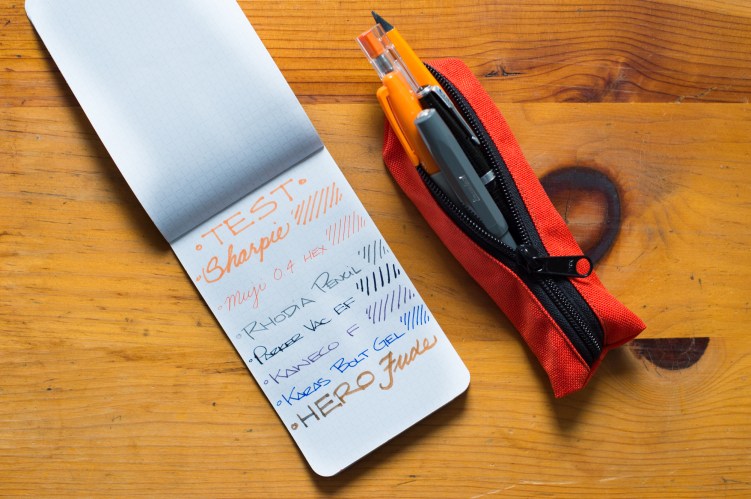 TEST
Sharpie
Muji 0.4 HEX
RHODIA PENCIL
PARKER VAC EF
KAWECO F
KARAS BOLT GEL
HERO Fude